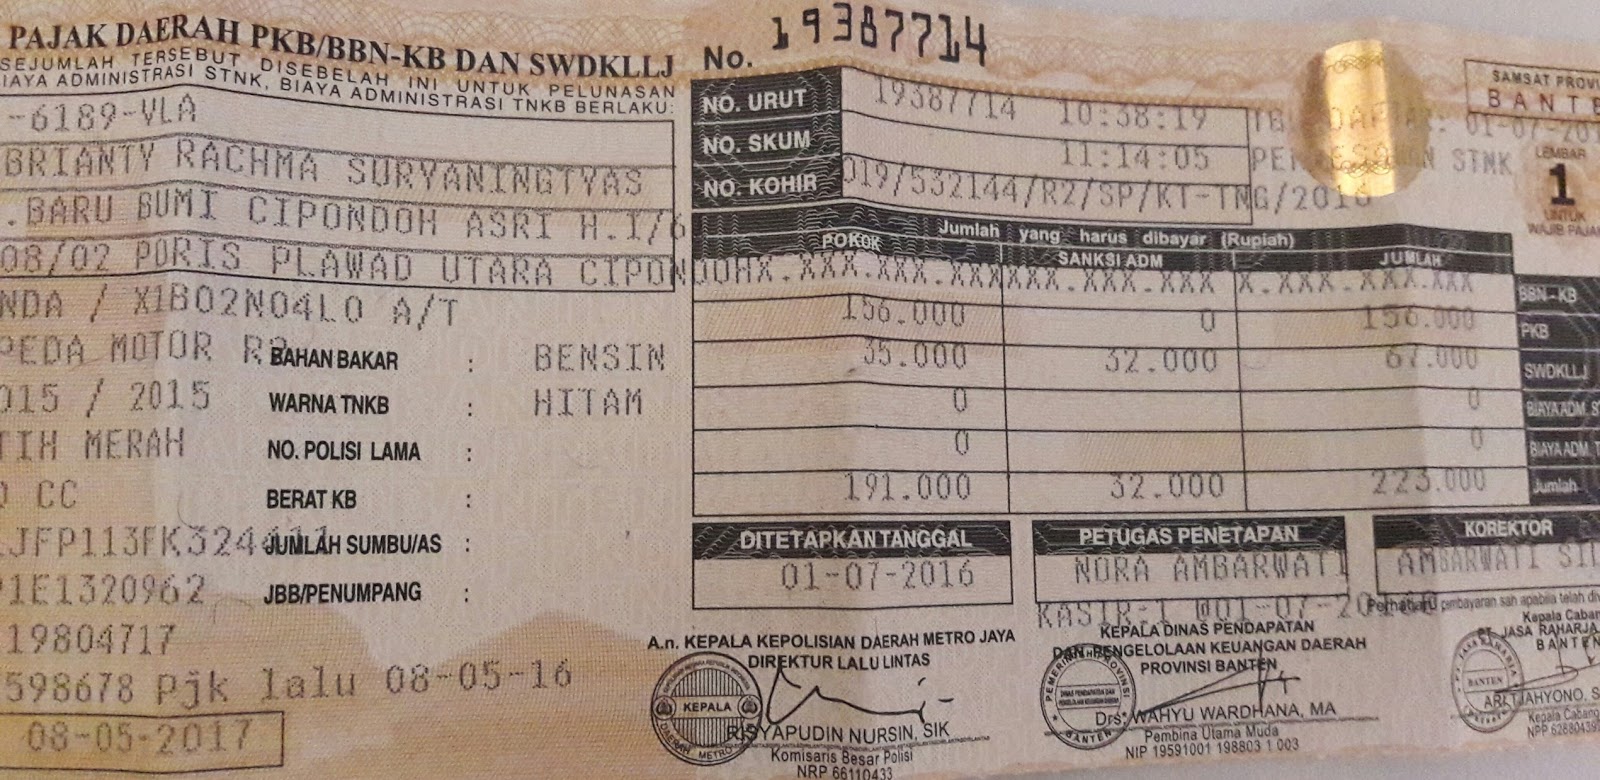 PAJAK DAERAH PKB/BBN-KB DAN SWDKLLJ
SEJUMLAH TERSEBUT DISEBELAH INI UNTUK PELUNASAN
BIAYA ADMINISTRASI STNK, BIAYA ADMINISTRASI TNKB BERLAKU:
-6189-VLA
BRIANTY RACHMA SURYANINGTYAS
.BARU BUMI CIPONDOH ASRI H.I/6
08/02 PORIS PLAWAD UTARA CIPONDOH
NDA / X1B02N04L0 A/T
PEDA MOTOR
015 / 2015
TIH MERAH
CC
JFP113FK324411
1E1320962
19804717
598678 Pjk lalu 08-05-16
08-05-2017
BAHAN BAKAR : BENSIN
WARNA TNKB : HITAM
NO. POLISI LAMA :
BERAT KB :
JUMLAH SUMBU/AS :
JBB/PENUMPANG :
No. 19387714
NO. URUT 19387714 10:38:19
NO. SKUM 11:14:05
NO. KOHIR 019/532144/R2/SP/KT-TNG/2016
01-07-201
STNK
SAMSAT PROVI
BANTE
LEMBAR
1
UNTUK
WAJIB PAJAK
Jumlah yang harus dibayar (Rupiah)
POKOK SANKSI ADM JUMLAH
X.XXX.XXX.XXX XXX.XXX.XXX X.XXX.XXX.XXX BBN-KB
156.000 0 156.000 PKB
35.000 32.000 67.000 SWDKLLJ
0 0 BIAYA ADM. S
0 0 BIAYA ADM. T
191.000 32.000 223.000 Jumlah
DITETAPKAN TANGGAL
01-07-2016
PETUGAS PENETAPAN
NORA AMBARWATI
KOREKTOR
AMBARWATI SI
KASIR-1 @01-07-2016
pembayaran sah apabila telah di
A.n. KEPALA KEPOLISIAN DAERAH METRO JAYA
DIREKTUR LALU LINTAS
KEPALA
METRO
RISYAPUDIN NURSIN, SIK
Komisaris Besar Polisi
NRP 66110433
KEPALA DINAS PENDAPATAN
DAN PENGELOLAAN KEUANGAN DAERAH
PROVINSI BANTEN
BANTEN
Drs. WAHYU WARDHANA, MA
Pembina Utama Muda
NIP 19591001 198803 1 003
Kepala Caban
PT. JASA RAHARJA
BANTEN
BANTEN
ARI TJAHYONO. S
Kepala Cabang